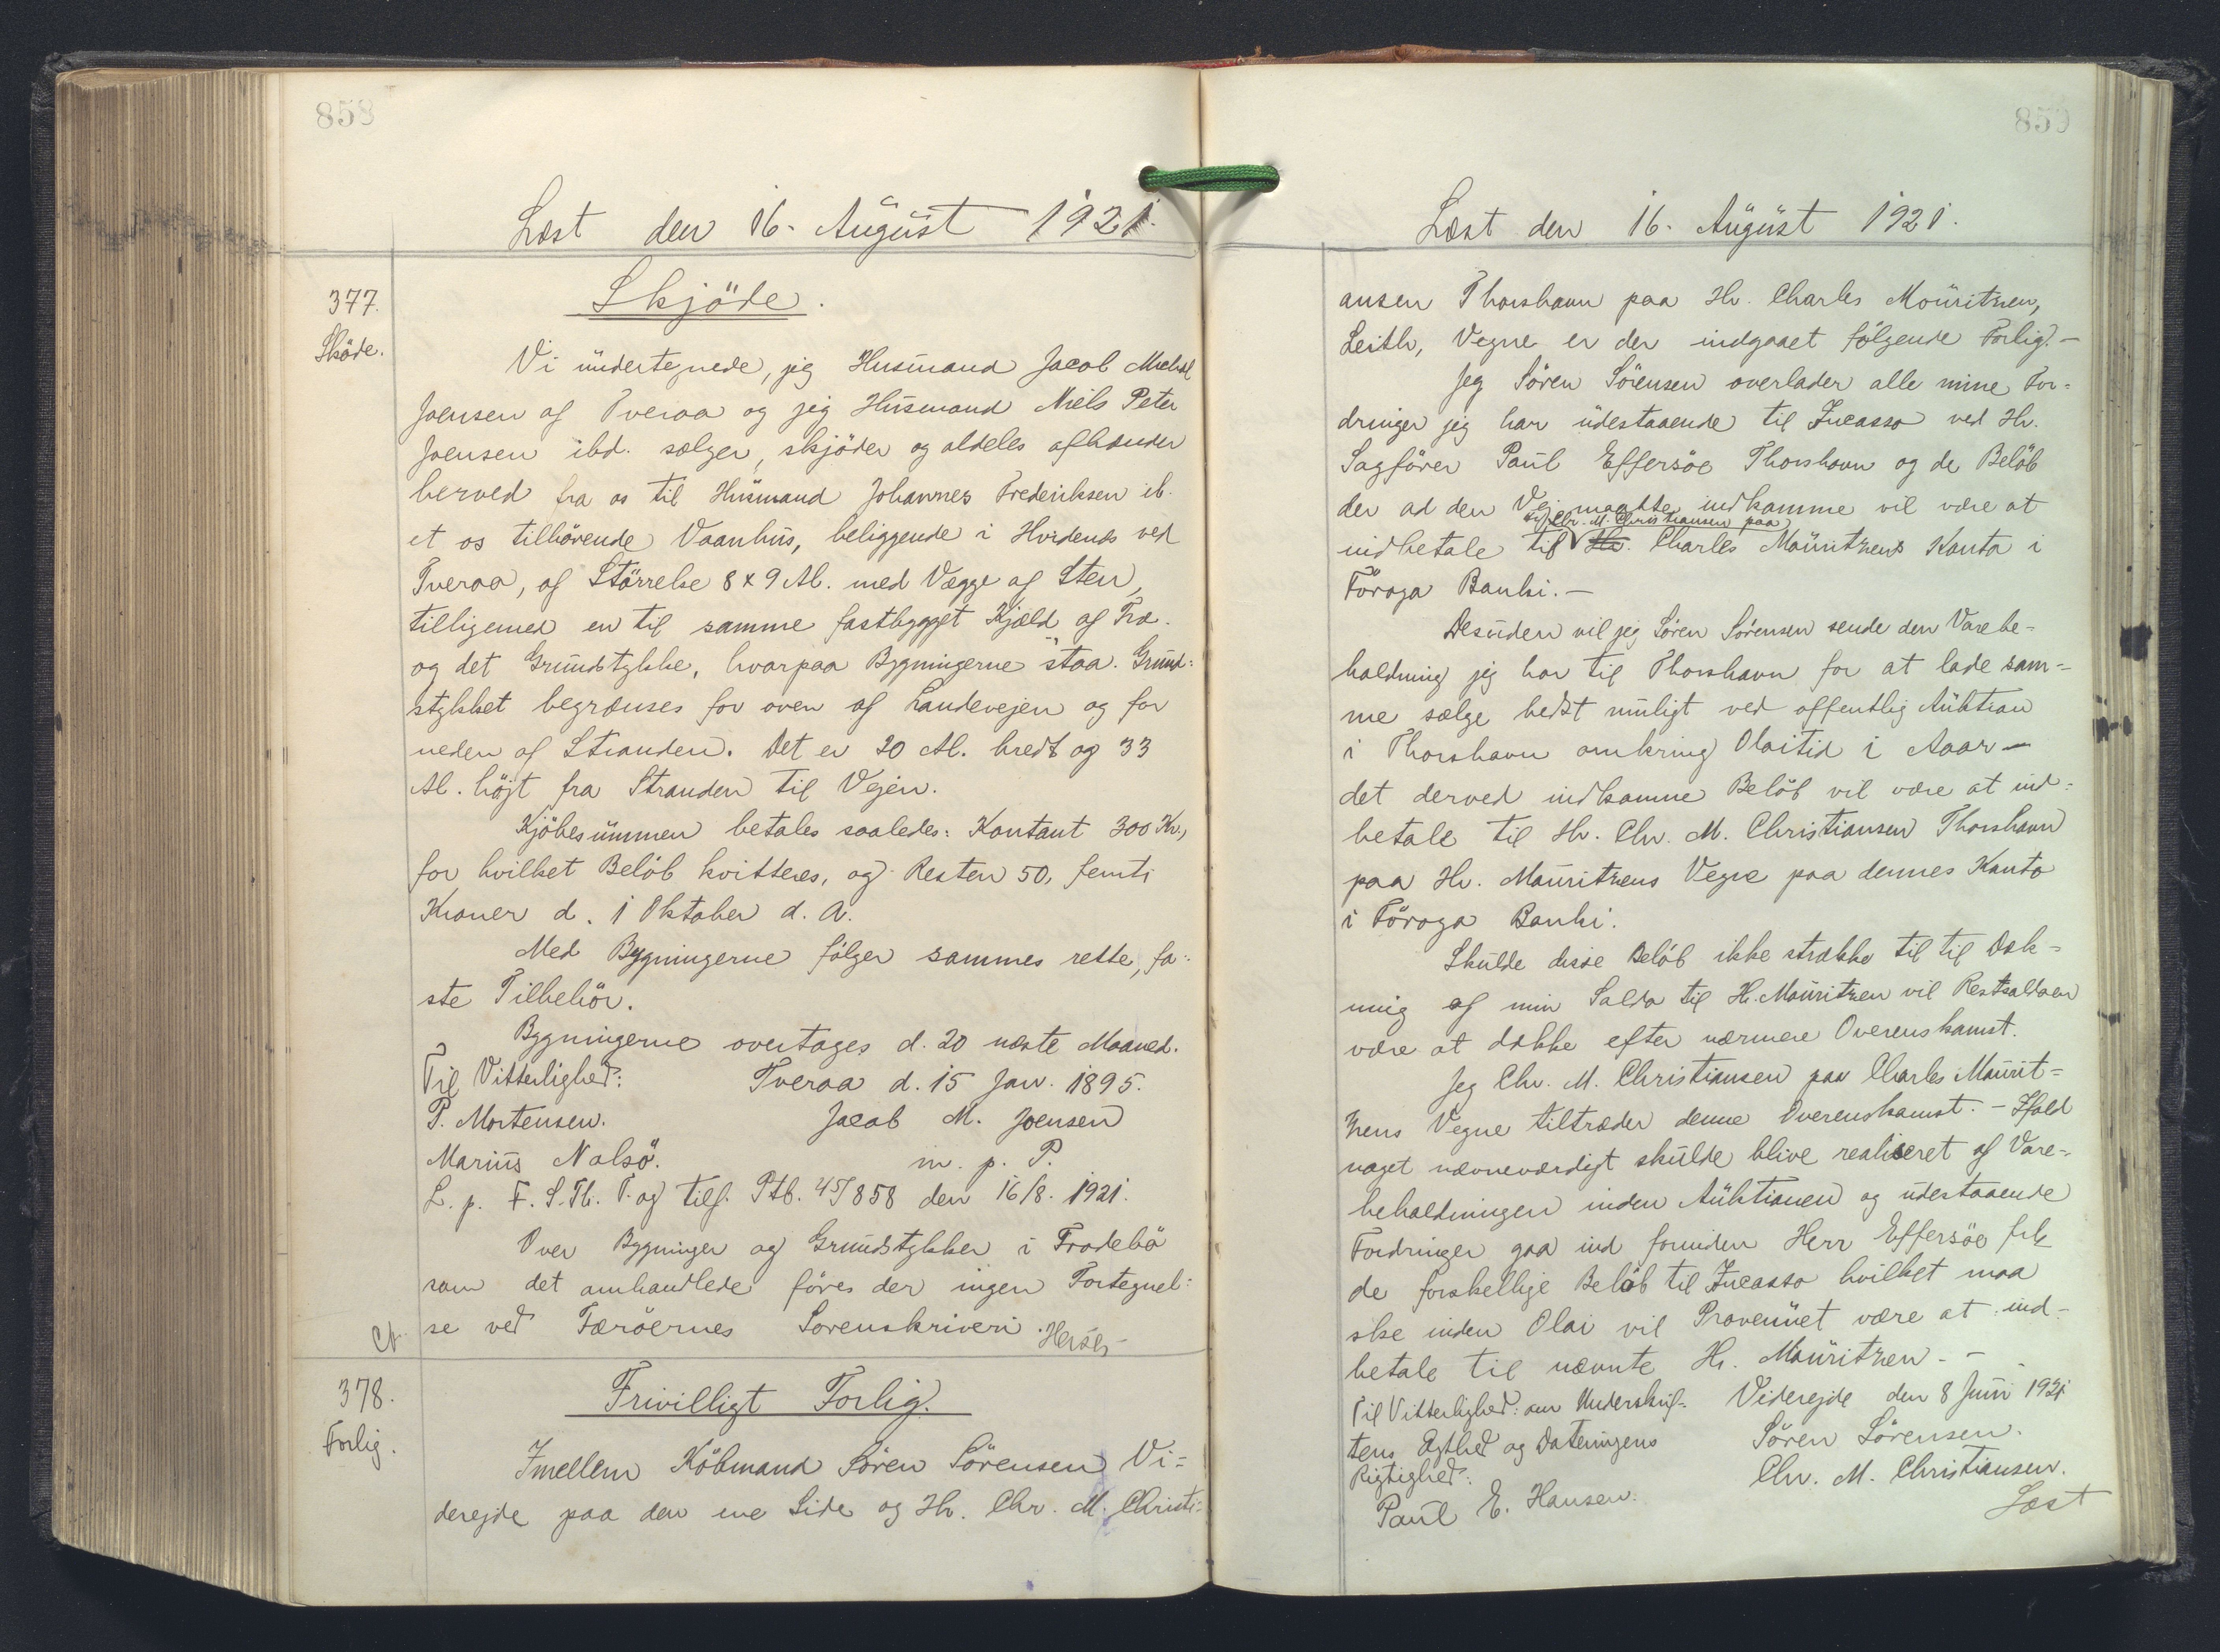 858
Læst den 16. August 1921.
377.
Sköde.
Skjöde.
Vi undertegnede, jeg Husmand Jacob Michael
Joensen af Tveraa og jeg Husmand Niels Peter
Joensen ibd. sælger, skjöder og aldeles afhænder
herved fra os til Husmand Johannes Frederiksen ib.
et os tilhörende Vaanhus, beliggende i Hvidenæs ved
Tveraa, af Störrelse 8 x 9 Al. med Vægge af Sten,
tilligemed en til samme fastbygget Kjæld af Træ.
og det Grundstykke, hvorpaa Bygningerne staa. Grund=
stykket begrænses for oven af Landevejen og for
neden af Stranden. Det er 20 Al. bredt og 33
Al. höjt fra Stranden til Vejen.
Kjöbesummen betales saaledes: Kontant 300 Kr,
for hvilket Belöb kvitteres, og Resten 50, femti
Kroner d. 1 Oktober d. A.
Med Bygningerne fölger sammes rette, fa=
ste Tilbehör.
Bygningerne overtages d. 20 næste Maaned.
Til Vitterlighed: Tveraa d. 15 Jan. 1895.
P. Mortensen. Jacob M. Joensen
Marius Nolsö. m. p. P.
L. p. F. S. Th. T. og tilf. Ptb. 45/858 den 16/8. 1921.
Over Bygninger og Grundstykker i Frodebö
som det omhandlede föres der ingen Fortegnel=
se ved Færöernes Sorenskriveri.
378.
Forlig.
Frivilligt Forlig.
Imellem Köbmand Sören Sörensen Vi=
derejde paa den ene Side og Hr. Chr. M. Christi=
859
Læst den 16. August 1921.
ansen Thorshavn paa Hr. Charles Mouritzen,
Leith, Vegne er der indgaaet fölgende Forlig. —
Jeg Sören Sörensen overlader alle mine For=
dringer jeg har udestaaende til Incasso ved Hr.
Sagförer Paul Effersöe Thorshavn og de Belöb
der ad den Vej maatte indkomme vil være at
til Chr. M. Christiansen paa
indbetale til Hr. Charles Mouritzens Konto i
Föroya Banki. —
Desuden vil jeg Sören Sörensen sende den Varebe=
holdning jeg har til Thorshavn for at lade sam=
me sælge bedst muligt ved offentlig Auktion
i Thorshavn omkring Olaitid i Aar —
det derved indkomne Belöb vil være at ind=
betale til Hr. Chr. M. Christiansen Thorshavn
paa Hr. Mouritzens Vegne paa dennes Konto
i Föroya Banki.
Skulde disse Belöb ikke strække til til Dæk=
ning af min Saldo til Hr. Mouritzen vil Restsaldoen
være at dække efter nærmere Overenskomst.
Jeg Chr. M. Christiansen paa Charles Mourit=
zens Vegne tiltræder denne Overenskomst. — Ifald
noget nævneværdigt skulde blive realiseret af Vare=
beholdningen inden Auktionen og udestaaende
Fordringer gaa ind forinden Herr Effersöe fik
de forskellige Belöb til Incasso hvilket maa
ske inden Olai vil Provenuet være at ind=
betale til nævnte Hr. Mouritzen. —
Til Vitterlighed: om Underskrif= Viderejde den 8 Juni 1921
tens Ægthed og Dateringens Sören Sörensen.
Rigtighed: Chr. M. Christiansen.
Paul E. Hansen.
Læst